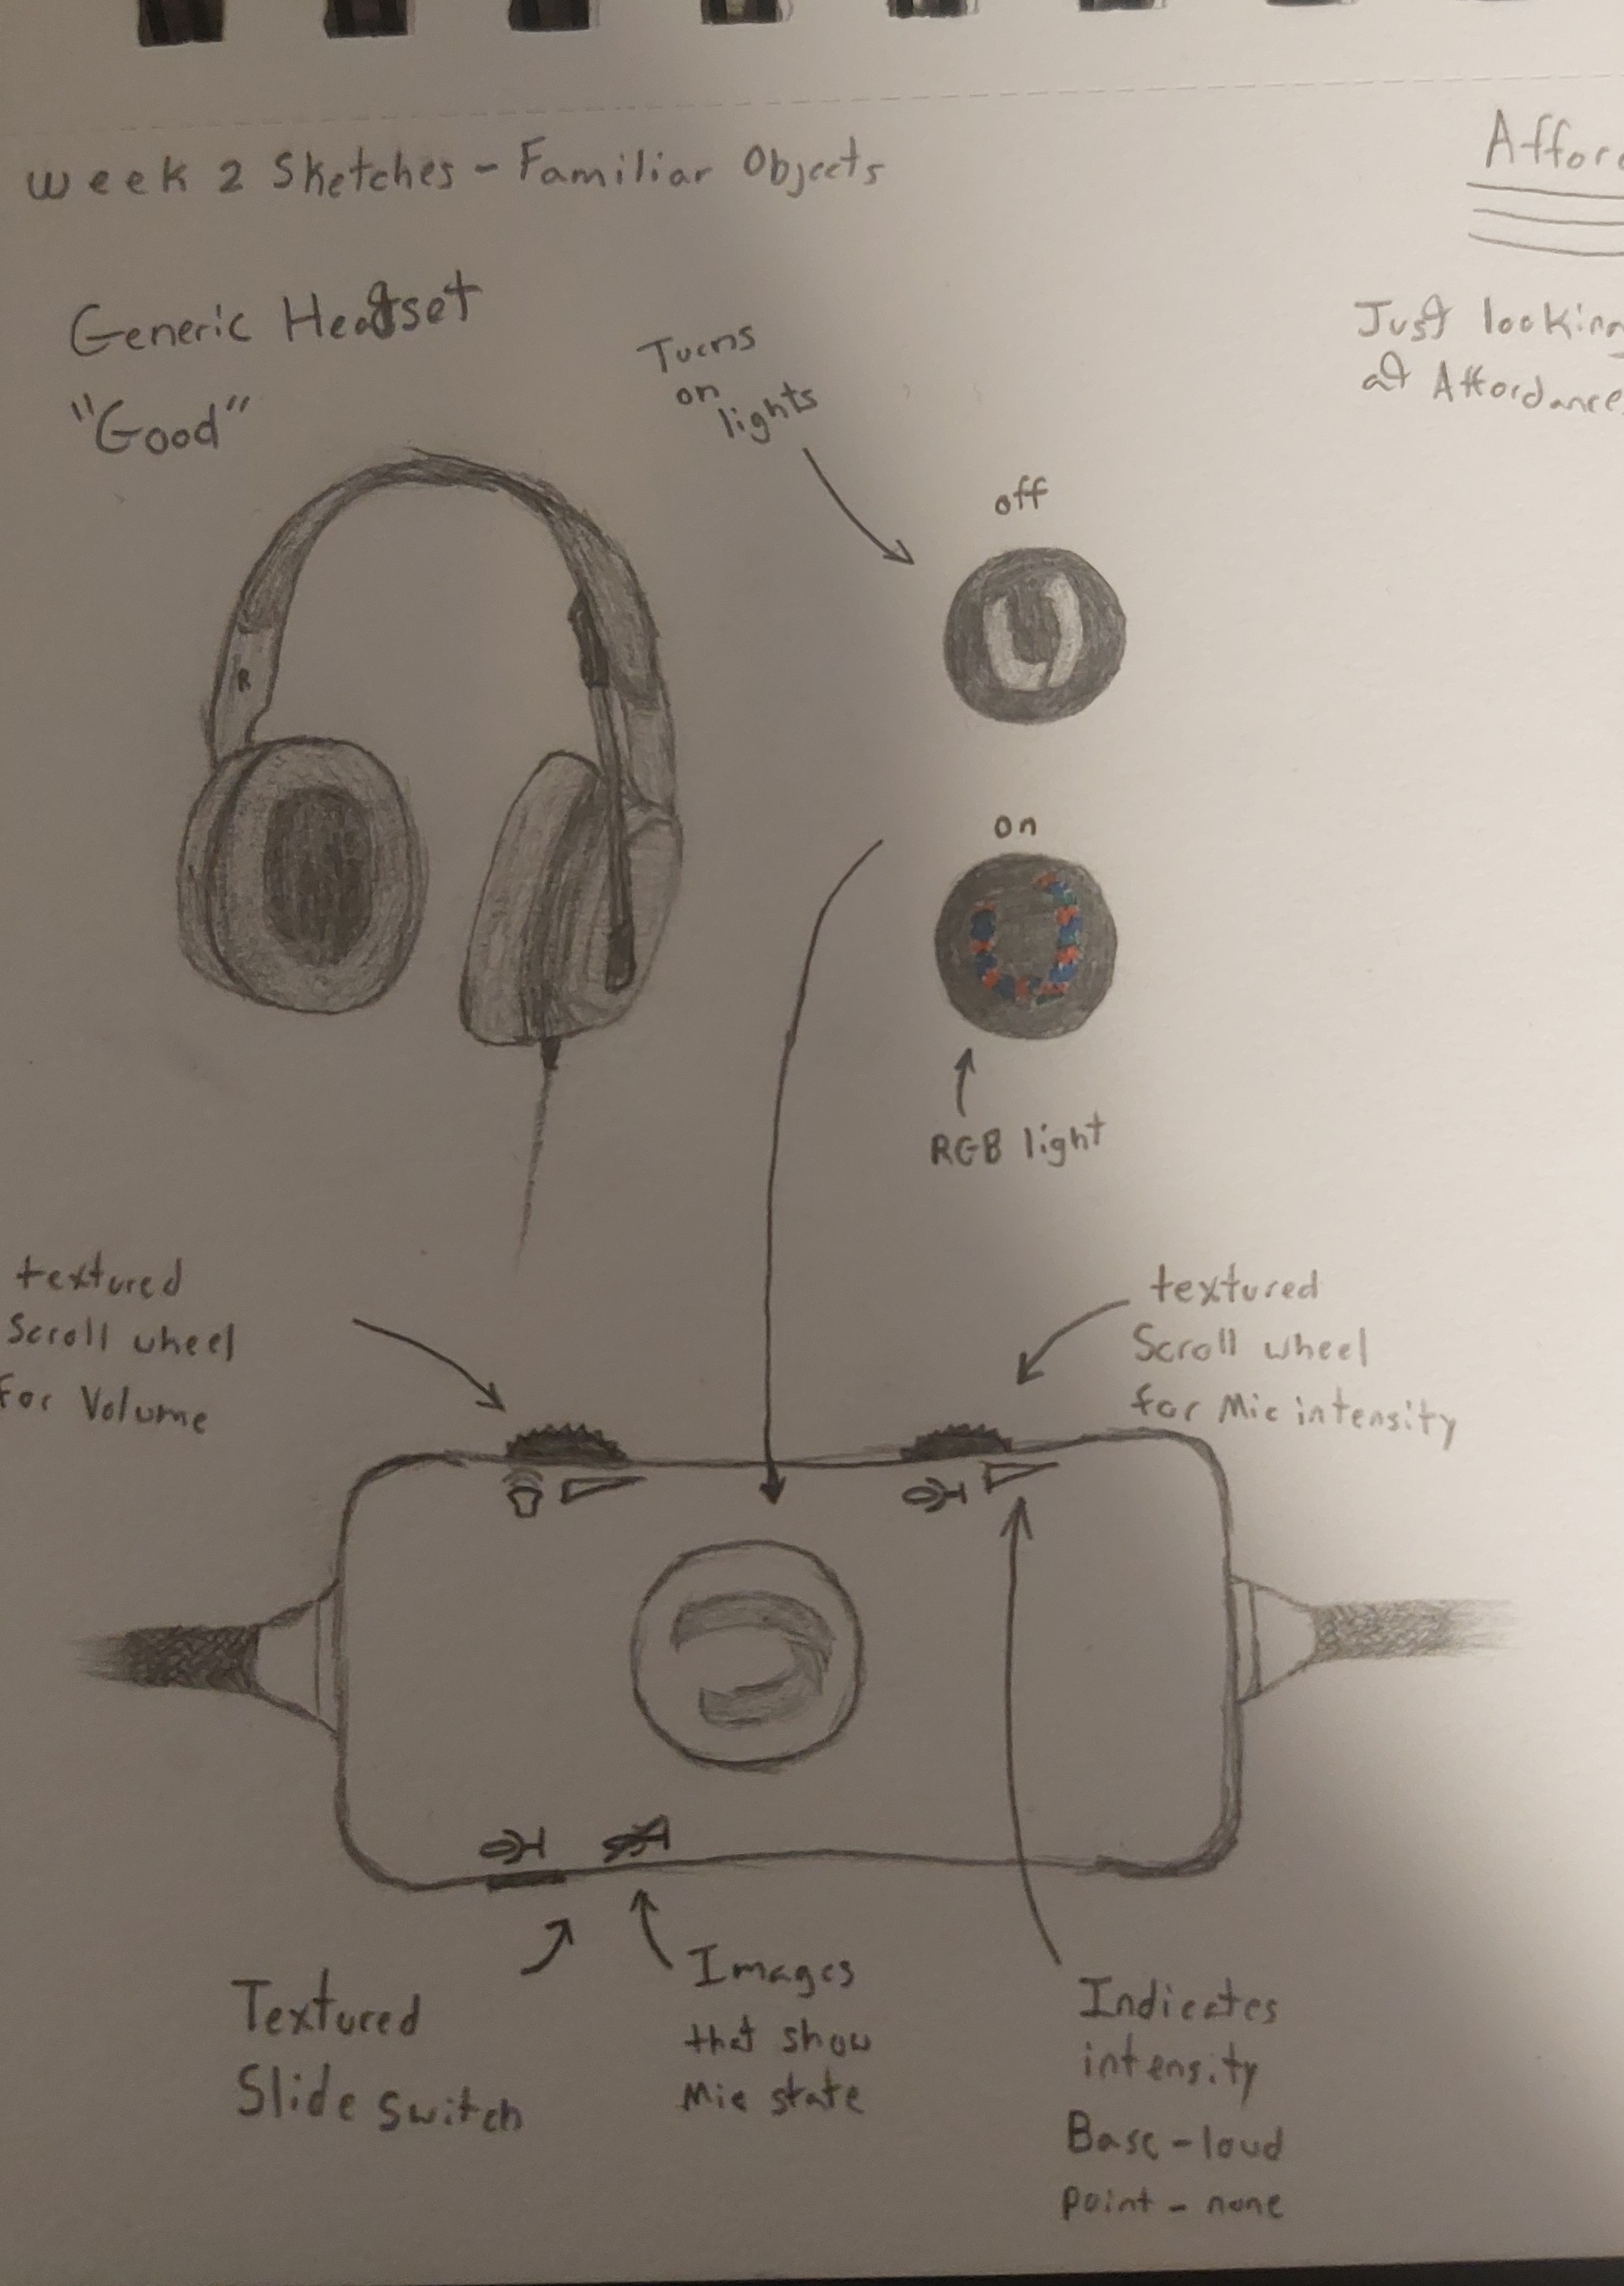 Week 2 Sketches - Familiar Objects
Affor
Generic Headset
"Good"
Just looking
at Affordance
Turns
on
lights
off
R
on
RGB light
textured
Scroll wheel
for Volume
textured
Scroll wheel
for Mic intensity
Textured
Slide switch
Images
that show
Mic state
Indicates
intensity
Base - loud
point - none